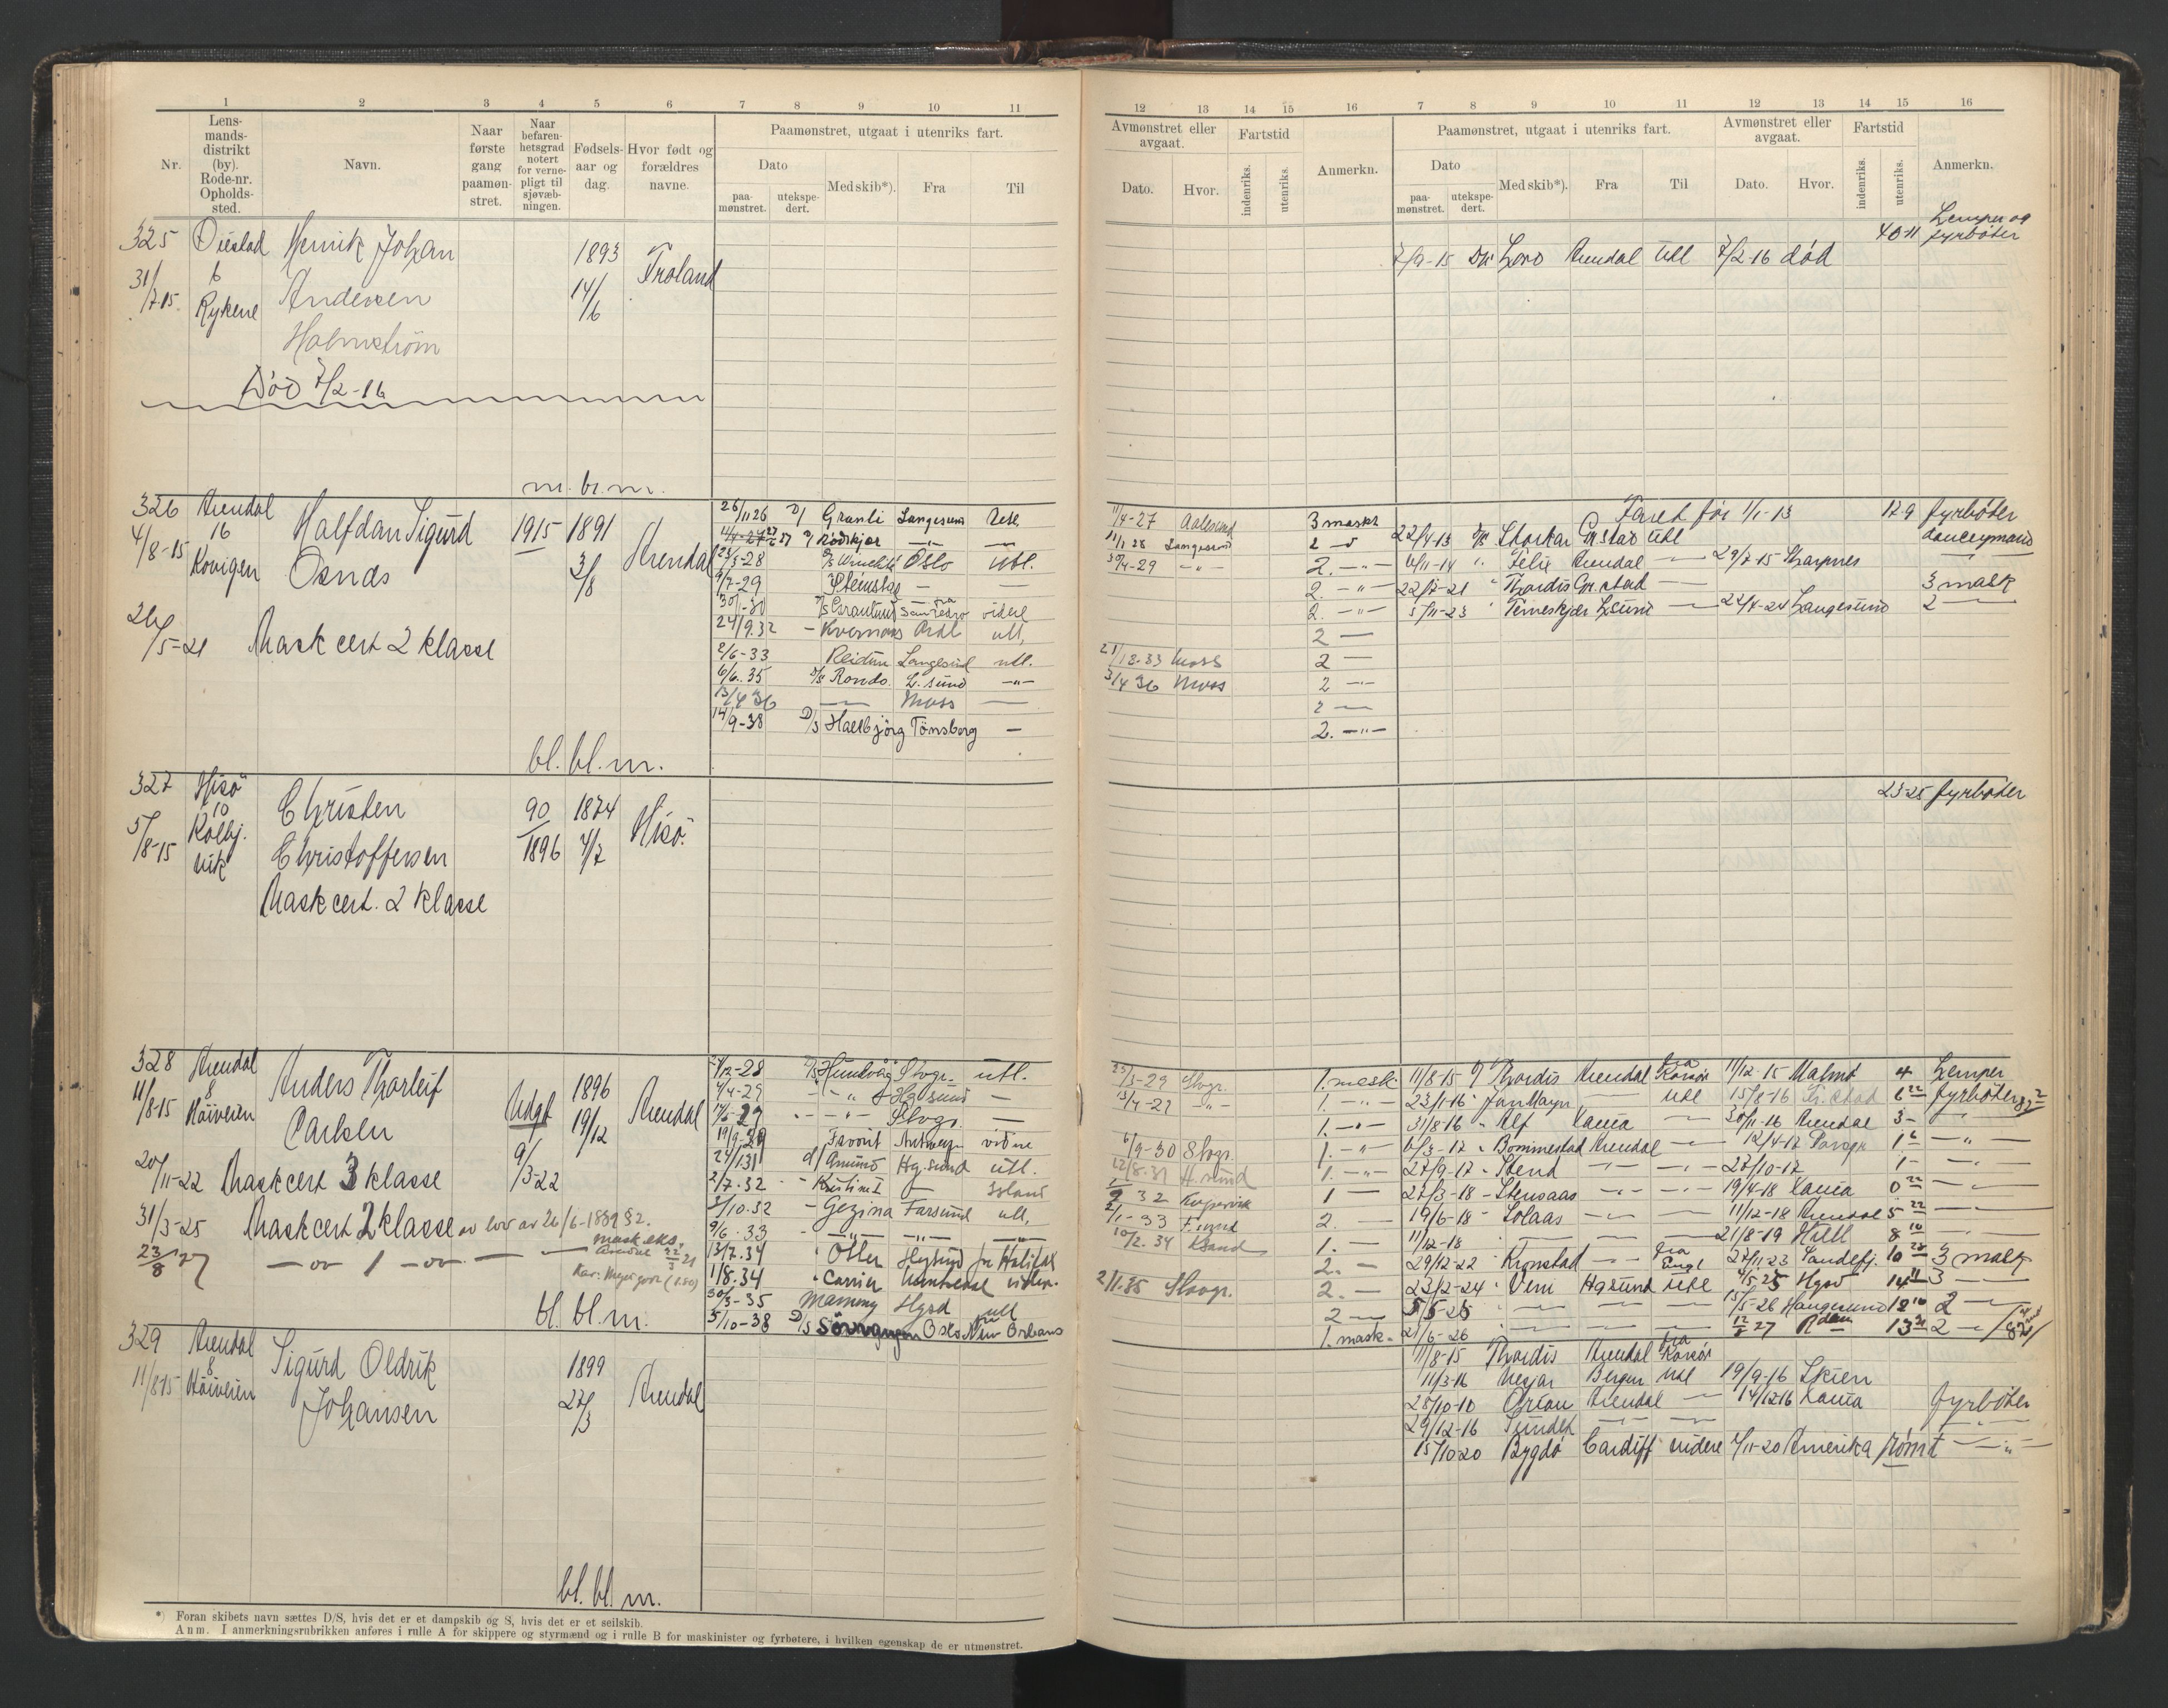 1 2 3 4 5 6 7 8 9 10 11
Nr.
Lens-
mands-
distrikt
(by).
Rode-nr.
Opholds-
sted.
Navn.
Naar
første
gang
paamøn-
stret.
Naar
befaren-
hetsgrad
notert
for verne-
pligt til
sjøvæb-
ningen.
Fødsels-
aar og
dag.
Hvor født og
forældres
navne.
Paamønstret, utgaat i utenriks fart.
Dato
paa-
mønstret.
utekspe-
dert.
Med skib*).
Fra
Til
325 Øiestad Henrik Johan 1893 Froland
31/7-15 6 Andersen 14/6
Rykene
Holmstrøm
Død 7/2-16
m. br. m.
326 Arendal Halfdan Sigurd 1915 1891 Arendal
4/8-15 16 3/8
Kovigen Osnds
26/5-21 Mask cert 2 klasse
26/11 26 Granli Langesund Utl.
23/5-28 Oslo utl.
7/7-29 Stemstad — —
24/9.32 - Kvernaas Ardl utl.
2/6-33 Reidun Langesund utl.
6/6.35 D/S Rondo L.sund —"—
13/4 36 — Moss —
14/9-38 D/S Hallbjørg Tønsberg —
bl. bl. m.
327 Hisø Christen 90 1874 Hisø.
5/8-15 10 Christoffersen 1896 4/7
Kolbj.
vik
Mask cert. 2 klasse
328 Arendal Anders Thorleif 1896 Arendal
11/8-15 8 Carlsen Udgt 19/12
Høiveien 9/3-22
20/11-22 Mask cert 3 klasse
31/3-25 Mask cert 2 klasse av lov av 26/6-1889 § 2.
23/8 27 — ov 1 — ov — —
mask.eks.
Arendal
Slvgr. utl.
4/4-29 — " — Hgsund —
— " — Slvgr. —
19/9-29 Favorit Antwerp videre
24/1 31 d/ Amund Hg.sund utl.
2/7.32 Kristine I — Island
5/10.32 - Gezina Farsund utl.
9/6.33 — " — — " —
13/7.34 Otter Hgsund fra Halifax
1/8.34 Carrier
30/3-35 Mammy Hgsd utl
5/10-38 D/S Sørvangen Oslo New Orleans
bl. bl. m.
329 Arendal Sigurd Oldrik 1899 Arendal
11/8-15 8 Johansen 27/3
Høiveien
bl. bl. m.
*) Foran skibets navn sættes D/S, hvis det er et dampskib og S, hvis det er et seilskib.
Anm. I anmerkningsrubrikken anføres i rulle A for skippere og styrmænd og i rulle B for maskinister og fyrbøtere, i hvilken egenskap de er utmønstret.
12 13 14 15 16 7 8 9 10 11 12 13 14 15 16
Avmønstret eller
avgaat.
Dato. Hvor.
Fartstid
indenriks. utenriks.
Anmerkn.
Paamønstret, utgaat i utenriks fart.
Dato
paa-
mønstret.
utekspe-
dert.
Med skib*). Fra Til
Avmønstret eller
avgaat.
Dato. Hvor.
Fartstid
indenriks. utenriks.
Anmerkn.
Lemper og
40-11 fyrbøter
7/9-15 Arendal utl 7/2-16 død
Faret før 1/1-13 129 fyrbøter
donkeymand
11/4-27 Aalesund 3 maskt
Langesund 2 —
30/4-29 — " — 2. — " —
22/4-13 Storkar Grstad utl
6/11-14 " Felix Arendal — 29/7-15 Skarpnes
22/7-21 " Thordis Gr.stad — — 3 mask
5/11-23 " Terneskjær Lsund — 22/4-24 Langesund 2 —
21/12.33 Moss 2 —
3/4 36 Moss 2 —
2 —
2. — " —
23-25 fyrbøter
23/3-29 Slvgr. 1. mask. 11/8-15 Thordis Arendal fra Korsør 11/12-15 Malmø 4 Lemper
13/4-29 — " — 1. — " — 23/1-16 Jan Mayn — utl 15/8-16 Fr.stad 6 22 fyrbøter
1. — " — 31/8-16 " Alf Xania — 30/11-16 Arendal 3 —
6/9-30 Slvgr. 1. — " — 6/3-17 " Bommestad Arendal — 12/4-17 1 6 — " —
12/8.31 H.sund 1. — " — 27/9-17 " Stend — — 27/10-17 1 — —
1 — 27/3-18 - Stensaas — — 19/4-18 Xania 0 22 —
2/1-33 F.sund 2. — 19/6-18 - Solaas — — 11/12-18 Arendal 5 22 —
10/2.34 Ksand 1. — 11/12-18 — — 21/8-19 Hull 8 10 —
2. — 29/12-22 Kronstad — fra Engl 27/11-23 Sandefj. 10 28 3 mask
2/1.35 Slvgr. 2. — 23/2-24 " Veni Hgsund utl 4/5-25 Hgsd 14 11 3 —
2 — 5/5-25 — — — 15/5-26 Haugesund 12 10 2 —
1. mask. 21/6-26 — — — 12/8 27 Rdam 13 21 2 —
11/8-15 Thordis Arendal fra Korsør
11/3-16 Bergen utl 19/9-16 Skien
28/10-10 Orion Arendal — 14/12 16 Xania fyrbøter
29/12-16 — —
15/10 20 Bygdø Cardiff videre 7/11-20 Amerika rømt — " —